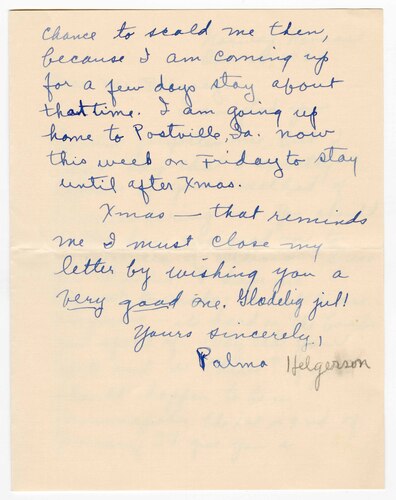 chance to scold me then,
because I am coming up
for a few days stay about
that time. I am going up
home to Postville, Ia. now
this week on Friday to stay
until after Xmas.
Xmas — that reminds
me I must close my
letter by wishing you a
very good one. Glædelig jul!
Yours sincerely,
Palma Helgerson